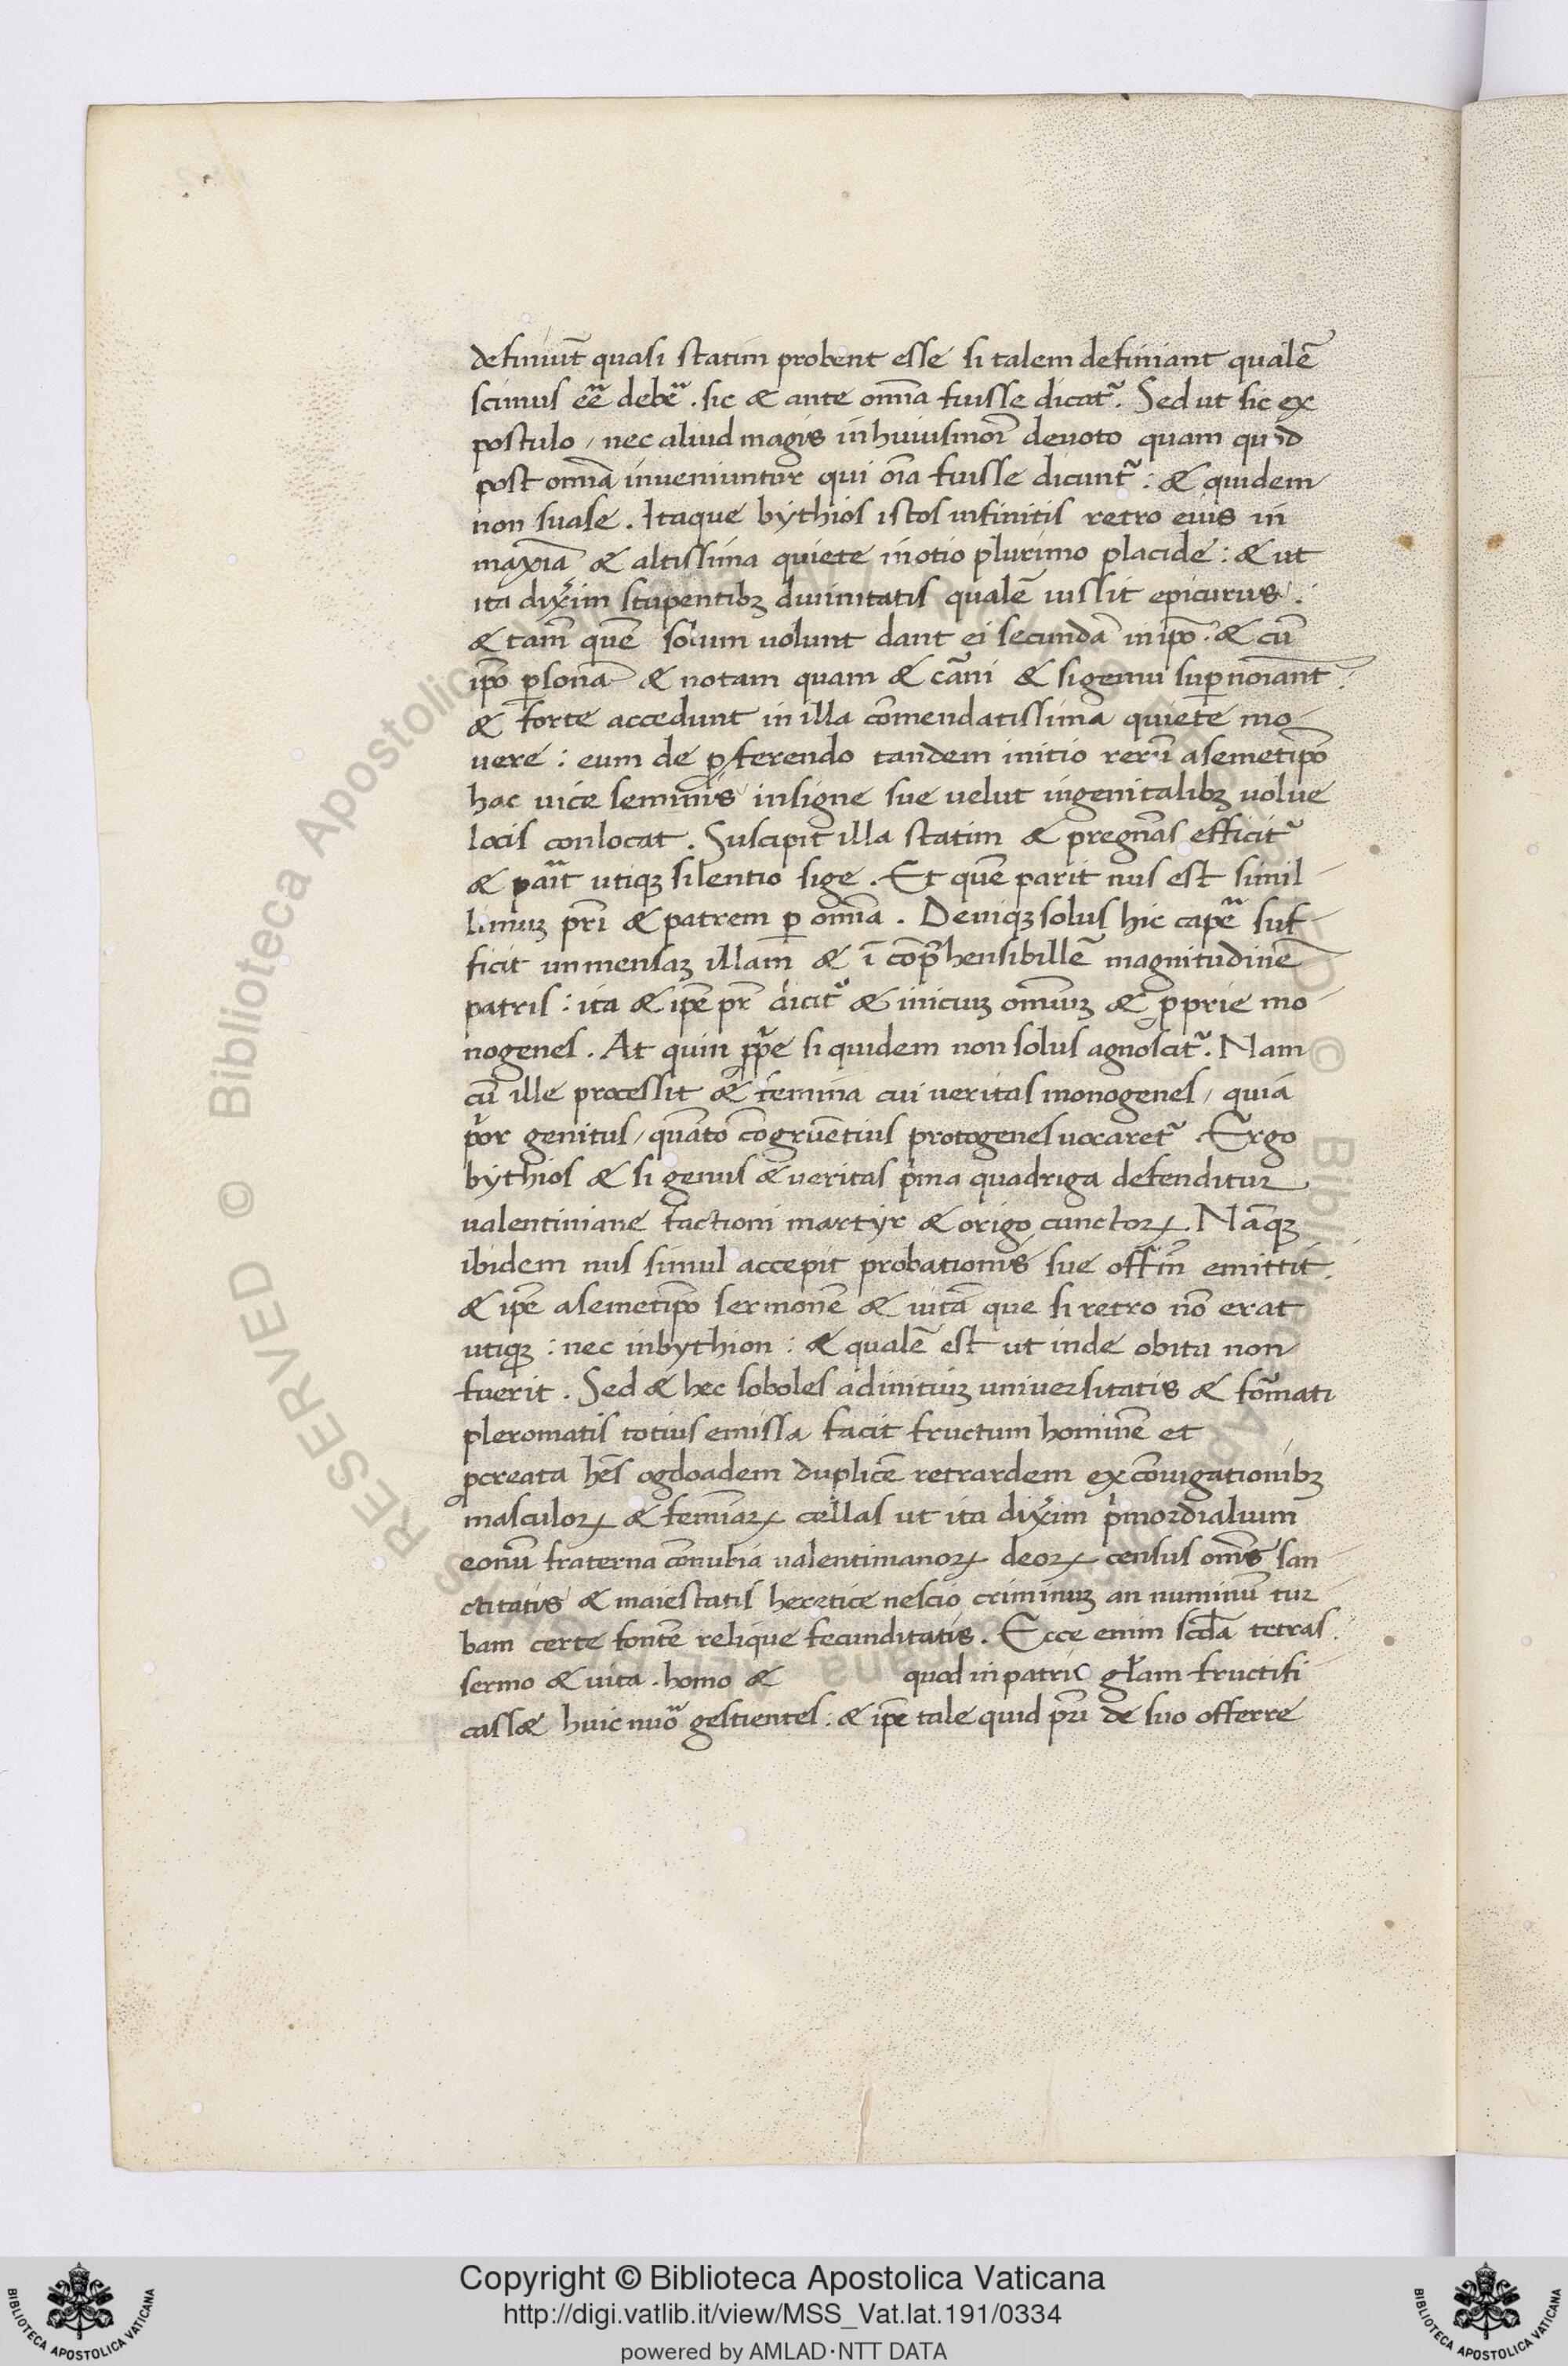 definiūt quasi statim probent esse si talem definiant qualē
scimus eē̃ debē̃. sic & ante om̄ia fuisse dicat᷑. Sed ut sic ex
postulo / nec aliud magis in huiusmōi denoto quam quod
post om̄ia inveniuntur qui oīa fuisse dicunt᷑ : & quidem
non suase. Itaque bythios istos infinitis retro euis in
maxīa & altissima quiete in otio plurimo placide : & ut
ita dixim̃ stupentibꝫ diuinitatis qualē iussit epicurus.
& tam̄ quē solum volunt dant ei secundā in ip̄o. & cū
ip̄o ꝑsonā & notam quam & cāni & sigenui suꝑnoīant.
& forte accedunt in illa com̄endatissima quiete mo-
uere : eum de ꝓferendo tandem initio rerū a semetip̄o
hac uice seminis insigne sue velut in genitalibꝫ volue
locis conlocat. Suscipit illa statim & pregnās efficit᷑
& paı̃t utiqꝫ silentio sige. Et quē parit nus est simil-
limuꝫ pr̄i & patrem ꝑ om̄ia. Deniqꝫ solus hic capē̃ suf-
ficit inmensaꝫ illam̄ & ī cōp̃hensibillē magnitudinē
patris : ita & ip̄e pr̄ dicit᷑ & inicuꝫ omniuꝫ & ꝓprie mo-
nogenes. At quin ꝓp̃e si quidem non solus agnoscit᷑. Nam
cū ille processit & femina cui veritas monogenes / quia
p̓or genitus / quāto cōgruētius protogenes uocaret᷑. Ergo
bythios & si genus & veritas p̓ma quadriga defenditur
ualentiniane factioni martyr & origo cunctoꝝ. Nāqꝫ
ibidem nus simul accepit probationis sue offīn emittit.
& ip̄e a semetip̄o sermonē & uitā que si retro nō erat
utiqꝫ : nec in bythion : & qualē est ut inde obita non
fuerit. Sed & hec soboles ad initiuꝫ universitatis & fōmati
pleromatis totius emissa facit fructum hominē et
ꝓcreata hēs ogdoadem duplicē retrardem ex cōiugationibꝫ
masculoꝝ & femīaꝝ cellas ut ita dixim̃ p̓mordialium
eonū fraterna cōnubia valentinianoꝝ deoꝝ census om̄is san-
ctitatis & maiestatis heretice nescio criminuꝫ an numinū tur
bam certe fontē relique fecunditatis. Ecce enim scd̄a tetras.
sermo & vita. homo & quod in patris gl̄am fructifi
cass& huic nūo gestientes : & ip̄e tale quid pr̄i de suo offerre
Copyright © Biblioteca Apostolica Vaticana
http://digi.vatlib.it/view/MSS_Vat.lat.191/0334
powered by AMLAD·NTT DATA